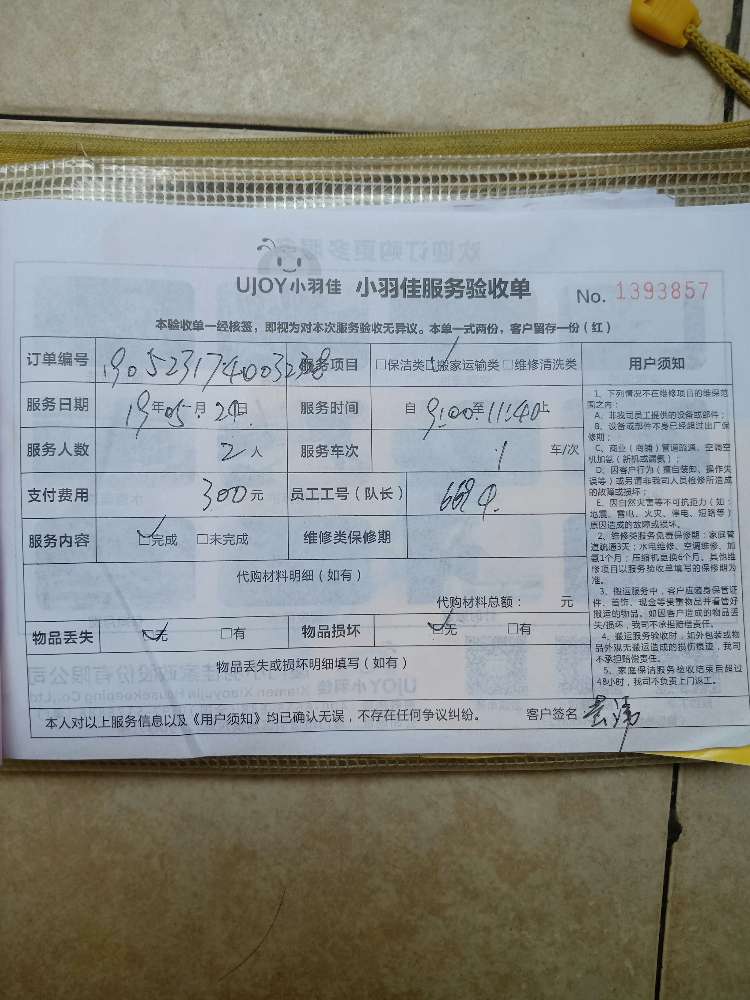 UJOY小羽佳 小羽佳服务验收单 No. 1393857
本验收单一经核签，即视为对本次服务验收无异议。本单一式两份，客户留存一份（红）
订单编号 服务项目 □保洁类□搬家运输类□维修清洗类
服务日期 19年05月 日 服务时间 自 9:00至11:40止
服务人数 2人 服务车次 1 车/次
支付费用 300元 员工工号（队长）
服务内容 □完成 □未完成 维修类保修期
代购材料明细（如有）
代购材料总额： 元
物品丢失 □无 □有 物品损坏 □无 □有
物品丢失或损坏明细填写（如有）
本人对以上服务信息以及《用户须知》均已确认无误，不存在任何争议纠纷。 客户签名：
用户须知
1、下列情况不在维修项目的维保范
围之内：
A、非我司员工提供的设备或部件；
B、设备或部件本身已经超过出厂保
修期；
C、商业（商铺）管道疏通、空调空
机加氨（新机或漏氨）；
D、因客户行为（擅自装卸、操作失
误等）或另请非我司人员检修所造成
的故障或损坏；
E、因自然灾害等不可抗拒力（如：
地震、雷电、火灾、停电、短路等）
原因造成的故障或损坏。
2、维修类服务免费保修期：家庭管
道疏通3天；水电维修、空调维修、加
氨1个月；压缩机更换6个月。其他维
修项目以服务验收单填写的保修期为
准。
3、搬运服务中，客户应随身保管证
件、首饰、现金等贵重物品并看管好
搬运的物品。如因客户造成的物品丢
失/损坏，我司不承担赔偿责任。
4、搬运服务验收时，如外包装或物
品外观无搬运造成的损伤痕迹，我司
不承担赔偿责任。
5、家庭保洁服务验收结束后超过
48小时，我司不负责上门返工。